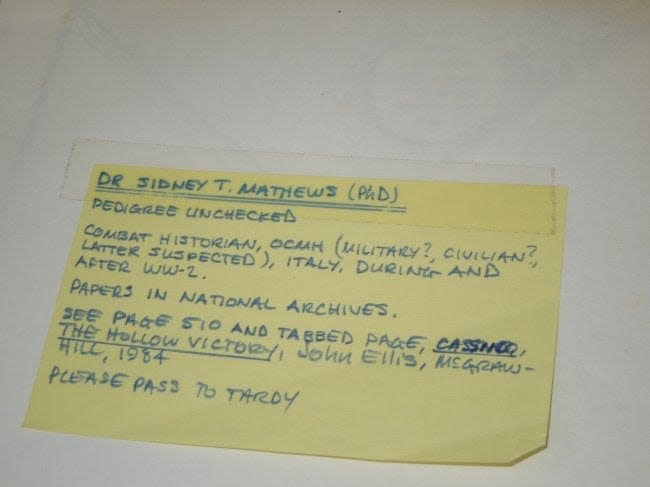 DR SIDNEY T. MATHEWS (PhD)
PEDIGREE UNCHECKED
COMBAT HISTORIAN, OCMH (MILITARY?, CIVILIAN?,
LATTER SUSPECTED), ITALY, DURING AND
AFTER WW-2.
PAPERS IN NATIONAL ARCHIVES.
SEE PAGE 510 AND TABBED PAGE, CASSINO,
THE HOLLOW VICTORY, John Ellis, McGRAW-
HILL, 1984
PLEASE PASS TO TARDY